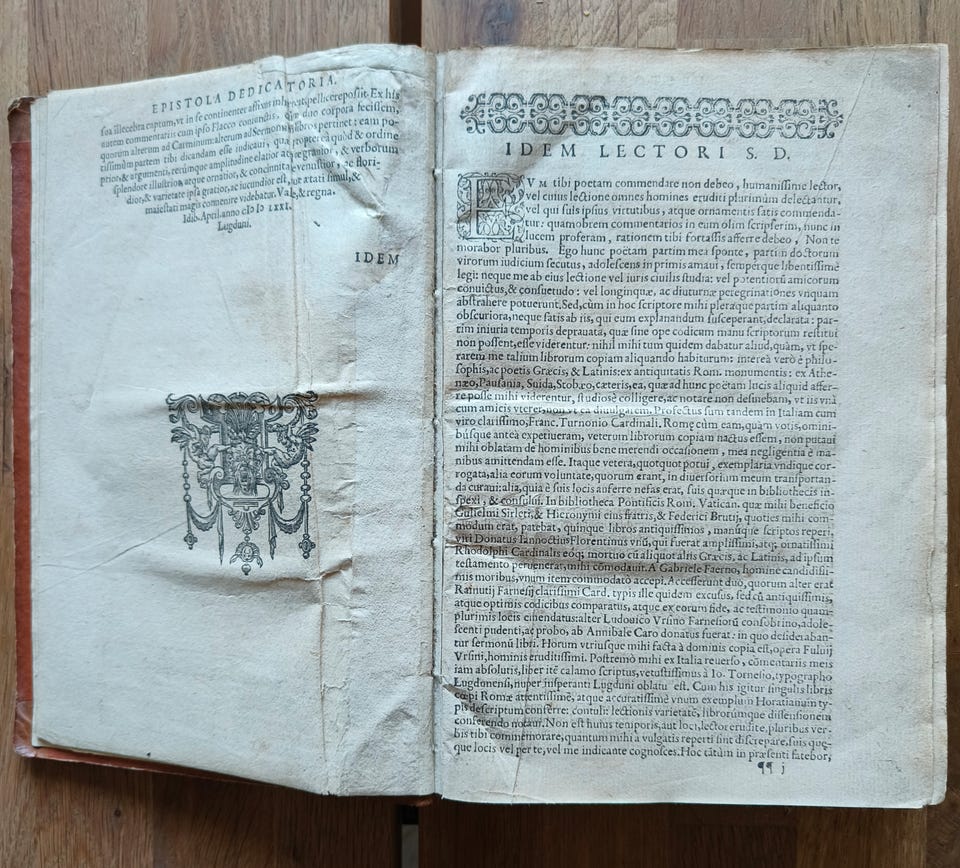 EPISTOLA DEDICATORIA.
sea illecebra captum, vt in se continenter assixus inhæreat, pellicere possit. Ex his
autem commentariis cum ipso Flacco coniunctis, duo corpora fecissem,
quorum alterum ad Carminum: alterum ad Sermonum libros pertinet: eam po-
tissimùm partem tibi dicandam esse iudicaui, quæ propterea quòd & ordine
prior, & argumenti, rerúmque amplitudine elatior atque grauior, & verborum
splendore illustrior, atque ornatior, & concinnitate venustior, ac flori-
dior, & varietate ipsa gratior, ac iucundior est, tuæ ætati simul, &
maiestati magis conuenire videbatur. Vale, & regna.
Idib. April. anno cIɔ Iɔ LXXI.
Lugduni.
IDEM
IDEM LECTORI S. D.
EVM tibi poëtam commendare non debeo, humanissime lector,
vel cuius lectione omnes homines eruditi plurimùm delectantur,
vel qui suis ipsius virtutibus, atque ornamentis satis commenda-
tur: quamobrem commentarios in eum olim scripserim, nunc in
lucem proferam, rationem tibi fortassis afferre debeo, Non te
morabor pluribus. Ego hunc poëtam partim mea sponte, partim doctorum
virorum iudicium secutus, adolescens in primis amaui, sempérque libentissimè
legi: neque me ab eius lectione vel iuris ciuilis studia: vel potentiorũ amicorum
conuictus, & consuetudo: vel longinquæ, ac diuturnæ peregrinationes vnquam
abstrahere potuerunt. Sed, cùm in hoc scriptore mihi pleraque partim aliquanto
obscuriora, neque satis ab iis, qui eum explanandum susceperant, declarata: par-
tim iniuria temporis deprauata, quæ sine ope codicum manu scriptorum restitui
non possent, esse viderentur: nihil mihi tum quidem dabatur aliud, quàm, vt spe-
rarem me talium librorum copiam aliquando habiturum: interea verò è philo-
sophis, ac poëtis Græcis, & Latinis: ex antiquitatis Rom. monumentis: ex Athe-
næo, Pausania, Suida, Stobæo, cæteris, ea, quæ ad hunc poëtam lucis aliquid affer-
re posse mihi viderentur, studiosè colligere, ac notare non desinebam, vt iis vnà
cum amicis vterer, non vt ea diuulgarem. Profectus sum tandem in Italiam cum
viro clarissimo, Franc. Turnonio Cardinali. Romę cùm eam, quàm votis, omini-
búsque antea expetiueram, veterum librorum copiam nactus essem, non putaui
mihi oblatam de hominibus bene merendi occasionem, mea negligentia è ma-
nibus amittendam esse. Itaque vetera, quotquot potui, exemplaria vndique cor-
rogata, alia eorum voluntate, quorum erant, in diuersorium meum transportan-
da curaui: alia, quia è suis locis auferre nefas erat, suis quæque in bibliothecis in-
spexi, & consului. In bibliotheca Pontificis Rom. Vatican. quæ mihi beneficio
Gulielmi Sirleti, & Hieronymi eius fratris, & Federici Brutij, quoties mihi com-
modum erat, patebat, quinque libros antiquissimos, manúque scriptos reperi,
viti Donatus Iannoctius Florentinus vnũ, qui fuerat amplissimi, atq; ornatissimi
Rhodolphi Cardinalis eóq; mortuo cũ aliquot aliis Græcis, ac Latinis, ad ipsum
testamento peruenerat, mihi cõmodauit. A Gabriele Faerno, homine candidissi-
mis moribus, vnum item commodatò accepi. Accesserunt duo, quorum alter erat
Rainutij Farnesij clarissimi Card. typis ille quidem excusus, sed cũ antiquissimis,
atque optimis codicibus comparatus, atque ex eorum fide, ac testimonio quam-
plurimis locis emendatus: alter Ludouico Vrsino Farnesiorũ consobrino, adole-
scenti pudenti, ac probo, ab Annibale Caro donatus fuerat: in quo desideraban-
tur sermonũ libri. Horum vtriusque mihi facta à dominis copia est, opera Fuluij
Vrsini, hominis eruditissimi. Postremò mihi ex Italia reuerso, cõmentariis meis
iam absolutis, liber itẽ calamo scriptus, vetustissimus à Io. Tornesio, typographo
Lugdunensi, nuper insperanti Lugduni oblatus est. Cum his igitur singulis libris
cœpi Romæ attentissimè, atque accuratissimè vnum exemplum Horatianum ty-
pis descriptum conferre: contuli: lectionis varietatẽ, librorúmque dissensionem
conferendo notaui. Non est huius temporis, aut loci, lector erudite, pluribus ver-
bis tibi commemorare, quantum mihi à vulgatis reperti sint discrepare, suis quę-
que locis vel per te, vel me indicante cognosces. Hoc tãtùm in præsenti fatebor,
¶¶ j